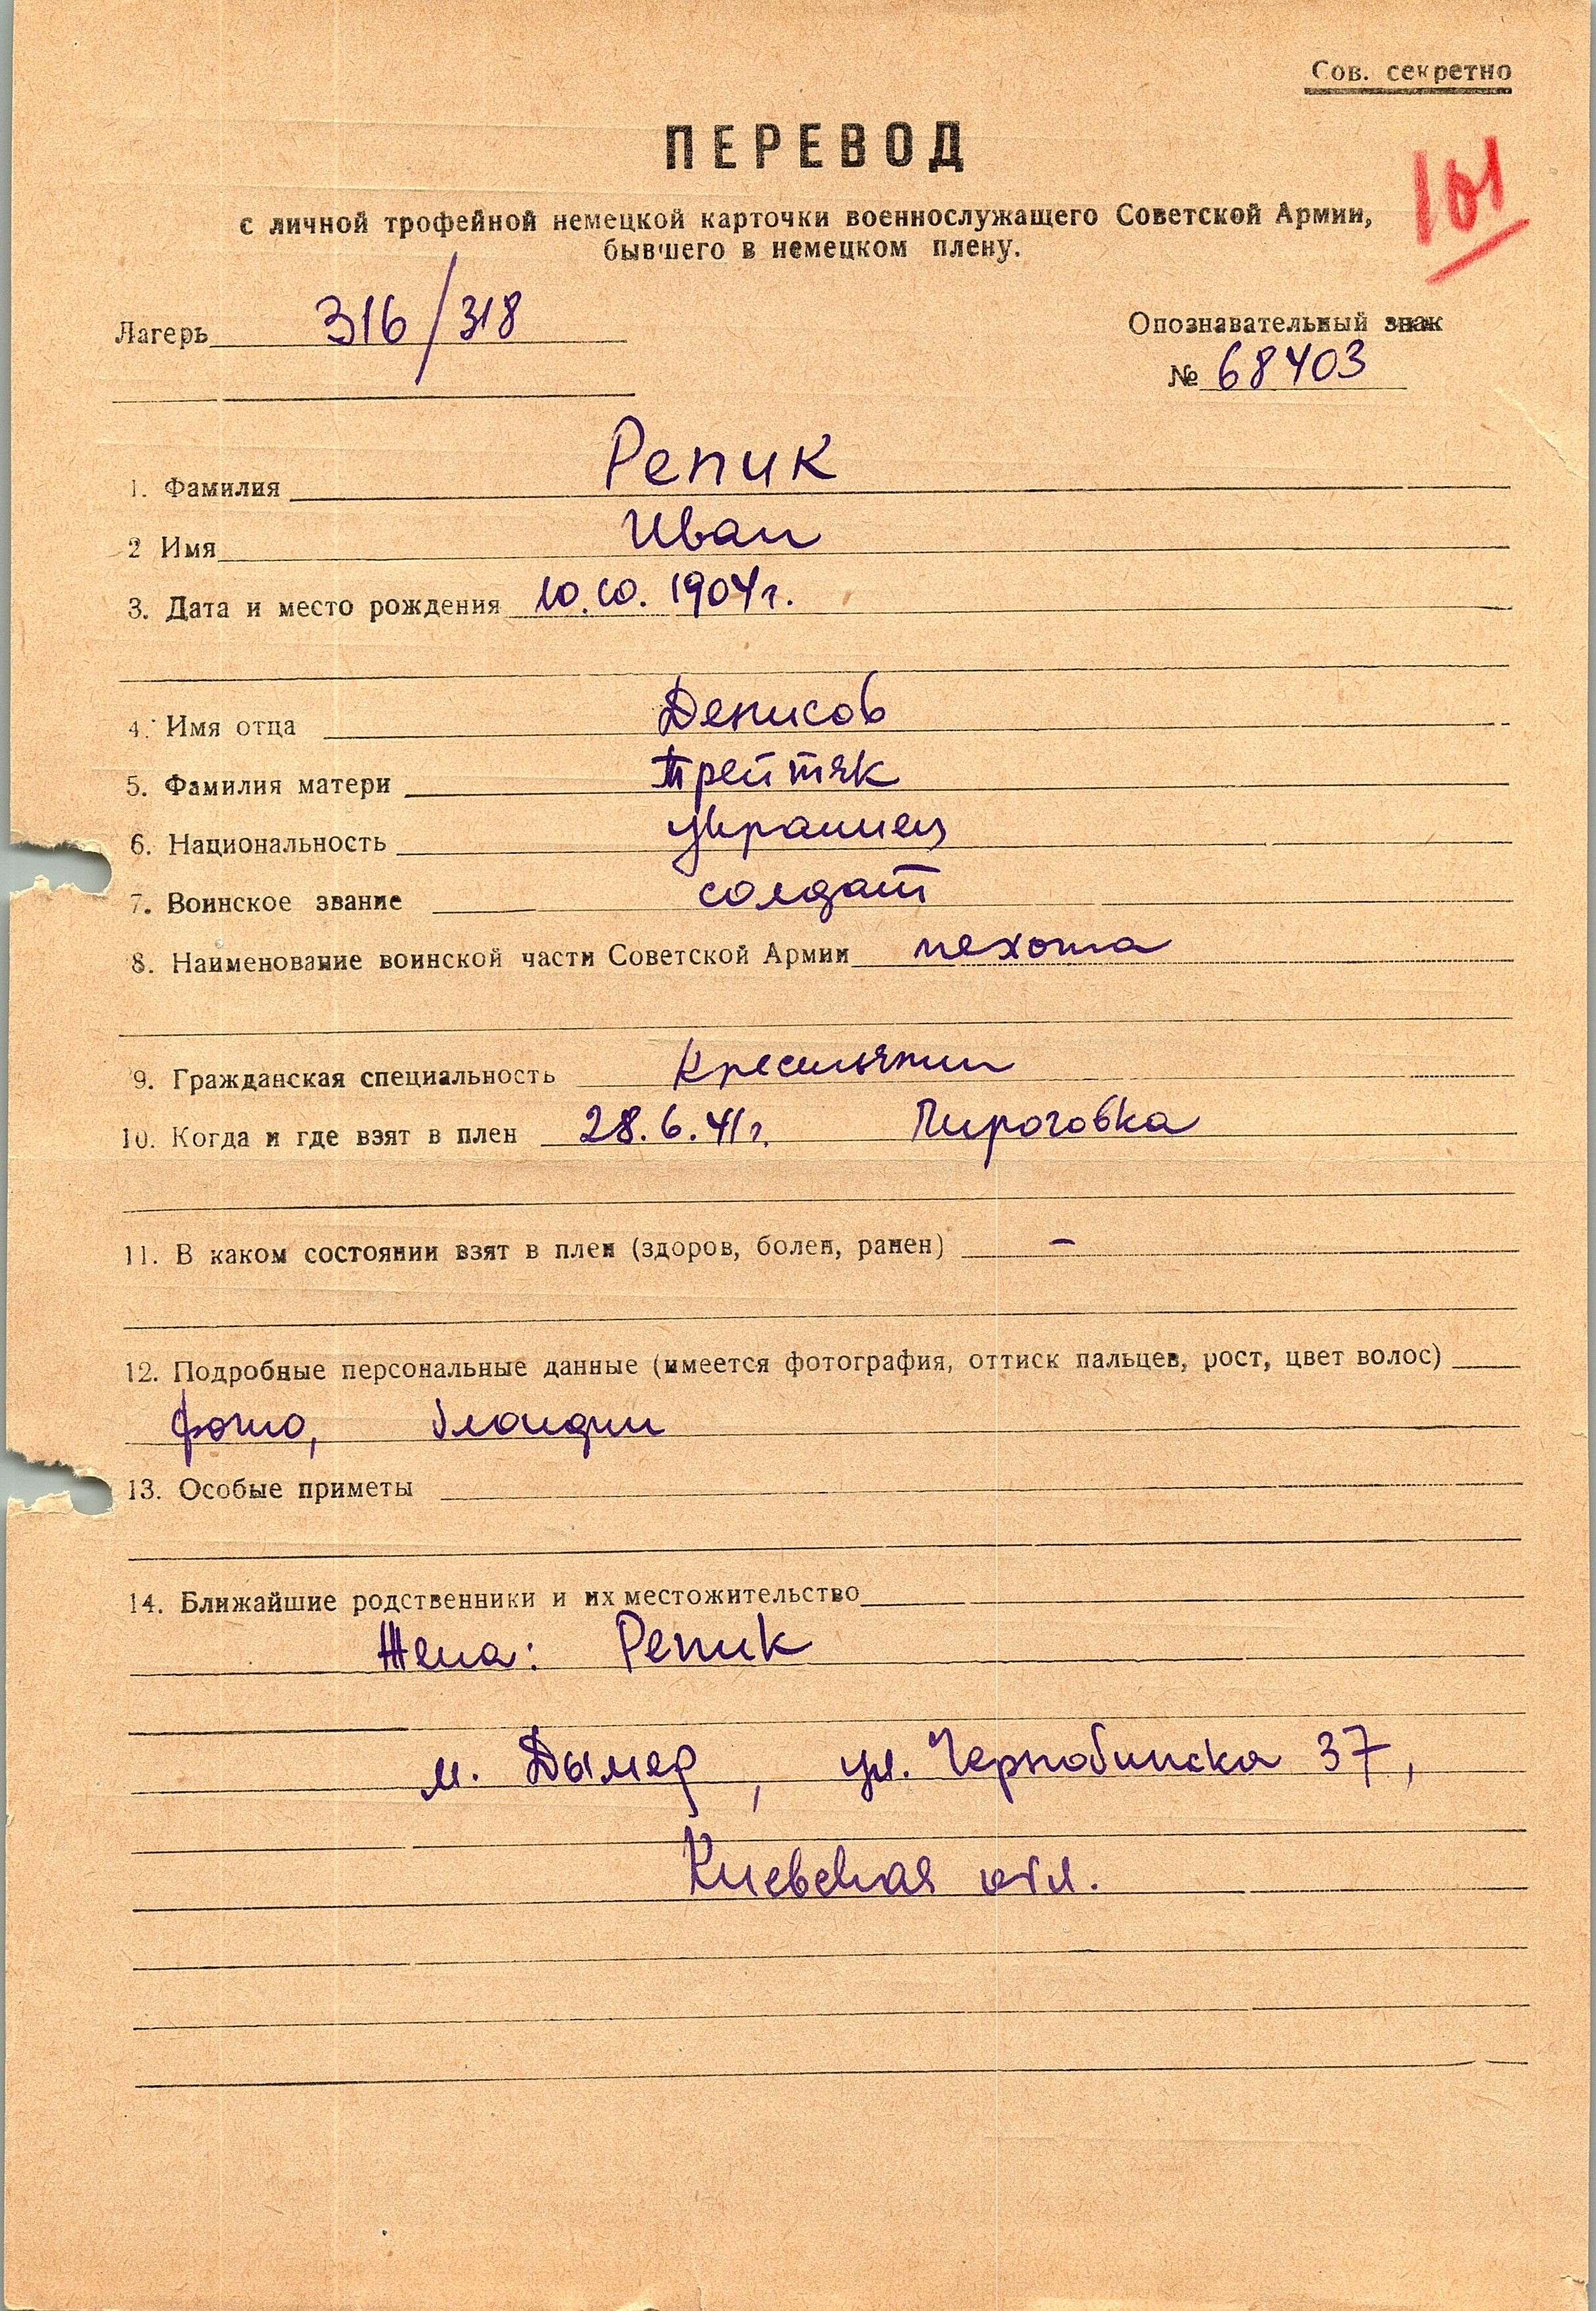 Сов. секретно
ПЕРЕВОД
101
с личной трофейной немецкой карточки военнослужащего Советской Армии,
бывшего в немецком плену.
Лагерь 316/318
Опознавательный знак
№ 68403
1. Фамилия Репик
2 Имя Иван
3. Дата и место рождения 10.10.1904г.
4. Имя отца Денисов
5. Фамилия матери Трейтяк
6. Национальность украинец
7. Воинское звание солдат
8. Наименование воинской части Советской Армии пехота
9. Гражданская специальность Крестьянин
10. Когда и где взят в плен 28.6.41г. Пироговка
11. В каком состоянии взят в плен (здоров, болен, ранен) –
12. Подробные персональные данные (имеется фотография, оттиск пальцев, рост, цвет волос)
фото, блондин
13. Особые приметы
14. Ближайшие родственники и их местожительство
Жена: Репик
м. Дымер, ул. Чернобинска 37,
Киевская обл.